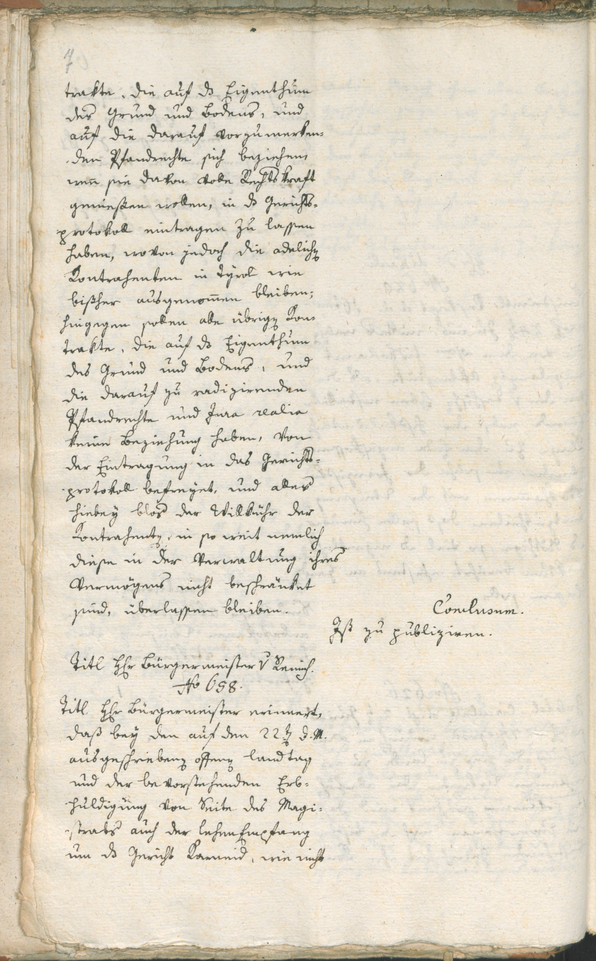 trakte, die auf ds Eigenthum
des Grund und Bodens, und
auf die darauf vorzumerken-
den Pfandrechte sich beziehen,
wen sie davon volle Rechtskraft
genießen wollen, in ds Gerichts-
protokoll eintragen zu lassen
haben, wovon jedoch die adeliche
Kontrahenten in Tyrol wie
bißher ausgenommen bleiben;
hingegen sollen alle übrige Kon-
trakte, die auf ds Eigenthum
des Grund und Bodens, und
die darauf zu radizirenden
Pfandrechte und Jura realia
keine Beziehung haben, von
der Eintragung in das Gerichts-
protokoll befreyet, und alles
hiebey blos der Willkühr der
Kontrahenten, in so weit nemlich
diese in der Verwaltung ihres
Vermögens nicht beschränket
sind, überlassen bleiben.
Conclusum.
Ist zu publiziren.
Titl Hr Bürgermeister v
No 658.
Titl Hr Bürgermeister erinnert,
daß bey den auf den 22ten d. M.
ausgeschriebenen offenen Landtag
und der bevorstehenden Erb-
huldigung von Seite des Magi-
strats auch der Lehen Empfang
um ds Gericht Karneid, wie nicht